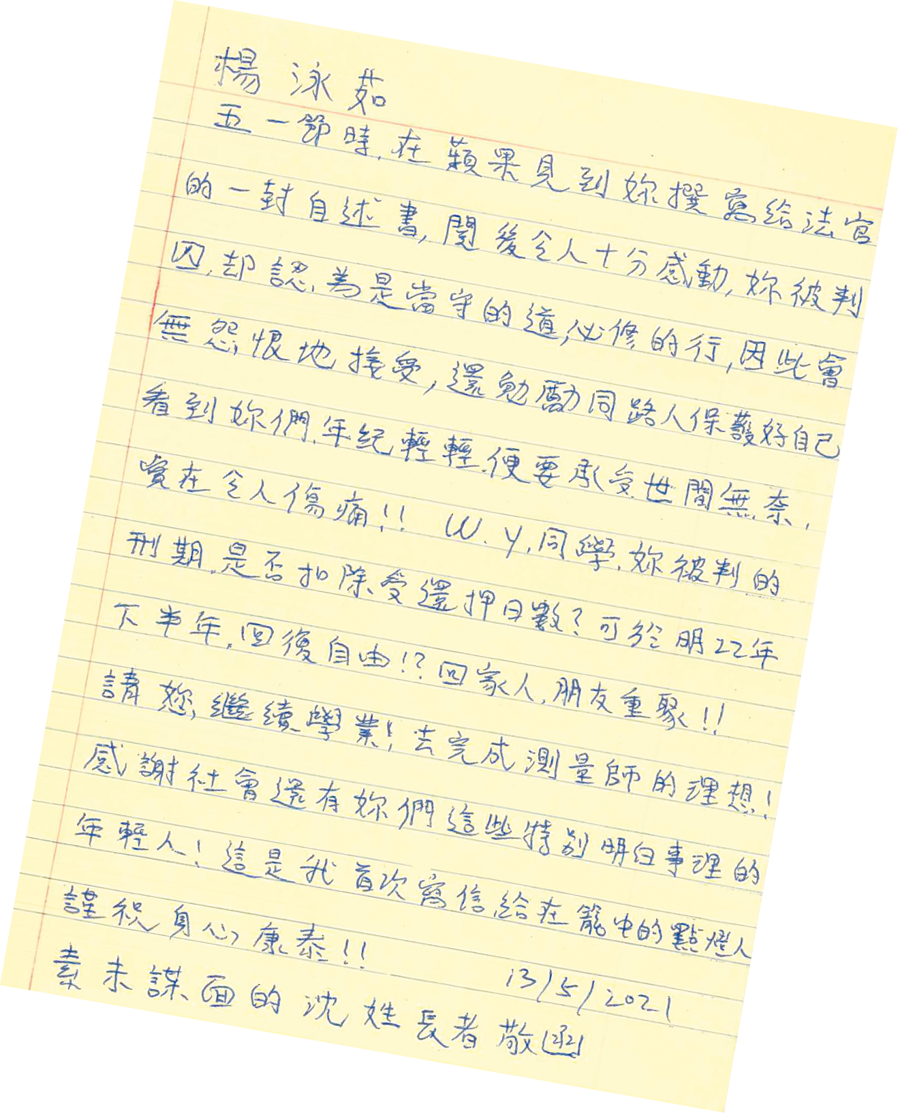 楊泳茹
五一節時,在蘋果見到妳撰寫給法官
的一封自述書,閱後令人十分感動,妳被判
囚,却認為是當守的道,必修的行,因此會
無怨恨地接受,還勉勵同路人保護好自己
看到妳們,年紀輕輕,便要承受世間無奈,
實在令人傷痛!! W.Y.同學,妳被判的
刑期,是否扣除受還押日數?可於明22年
下半年,回復自由!?回家人,朋友重聚!!
請妳,繼續學業!去完成測量師的理想!
感謝社會還有妳們這些特別明白事理的
年輕人!這是我首次寫信給在籠中的點燈人
謹祝身心康泰!!
13/5/2021
素未謀面的沈姓長者敬函